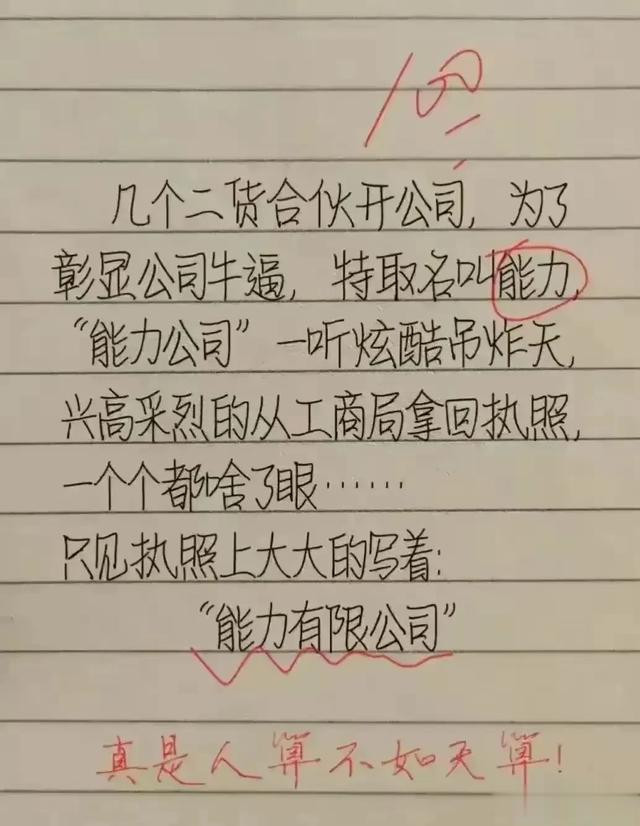 100
几个二货合伙开公司，为了
彰显公司牛逼，特取名叫能力，
“能力公司”一听炫酷吊炸天，
兴高采烈的从工商局拿回执照，
一个个都啥了眼……
只见执照上大大的写着：
“能力有限公司”
真是人算不如天算！